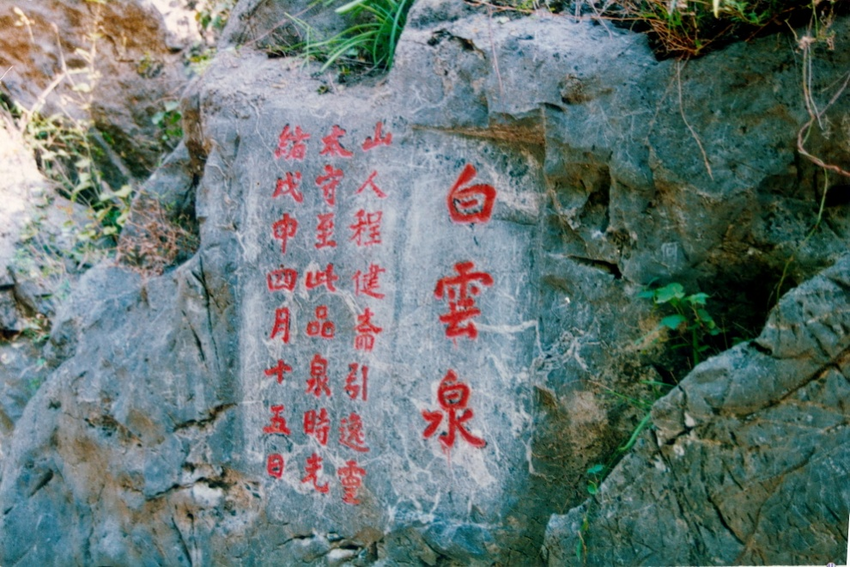 白雲泉
山人程健斋引逸雲
太守至此品泉時光
緒戊申四月十五日